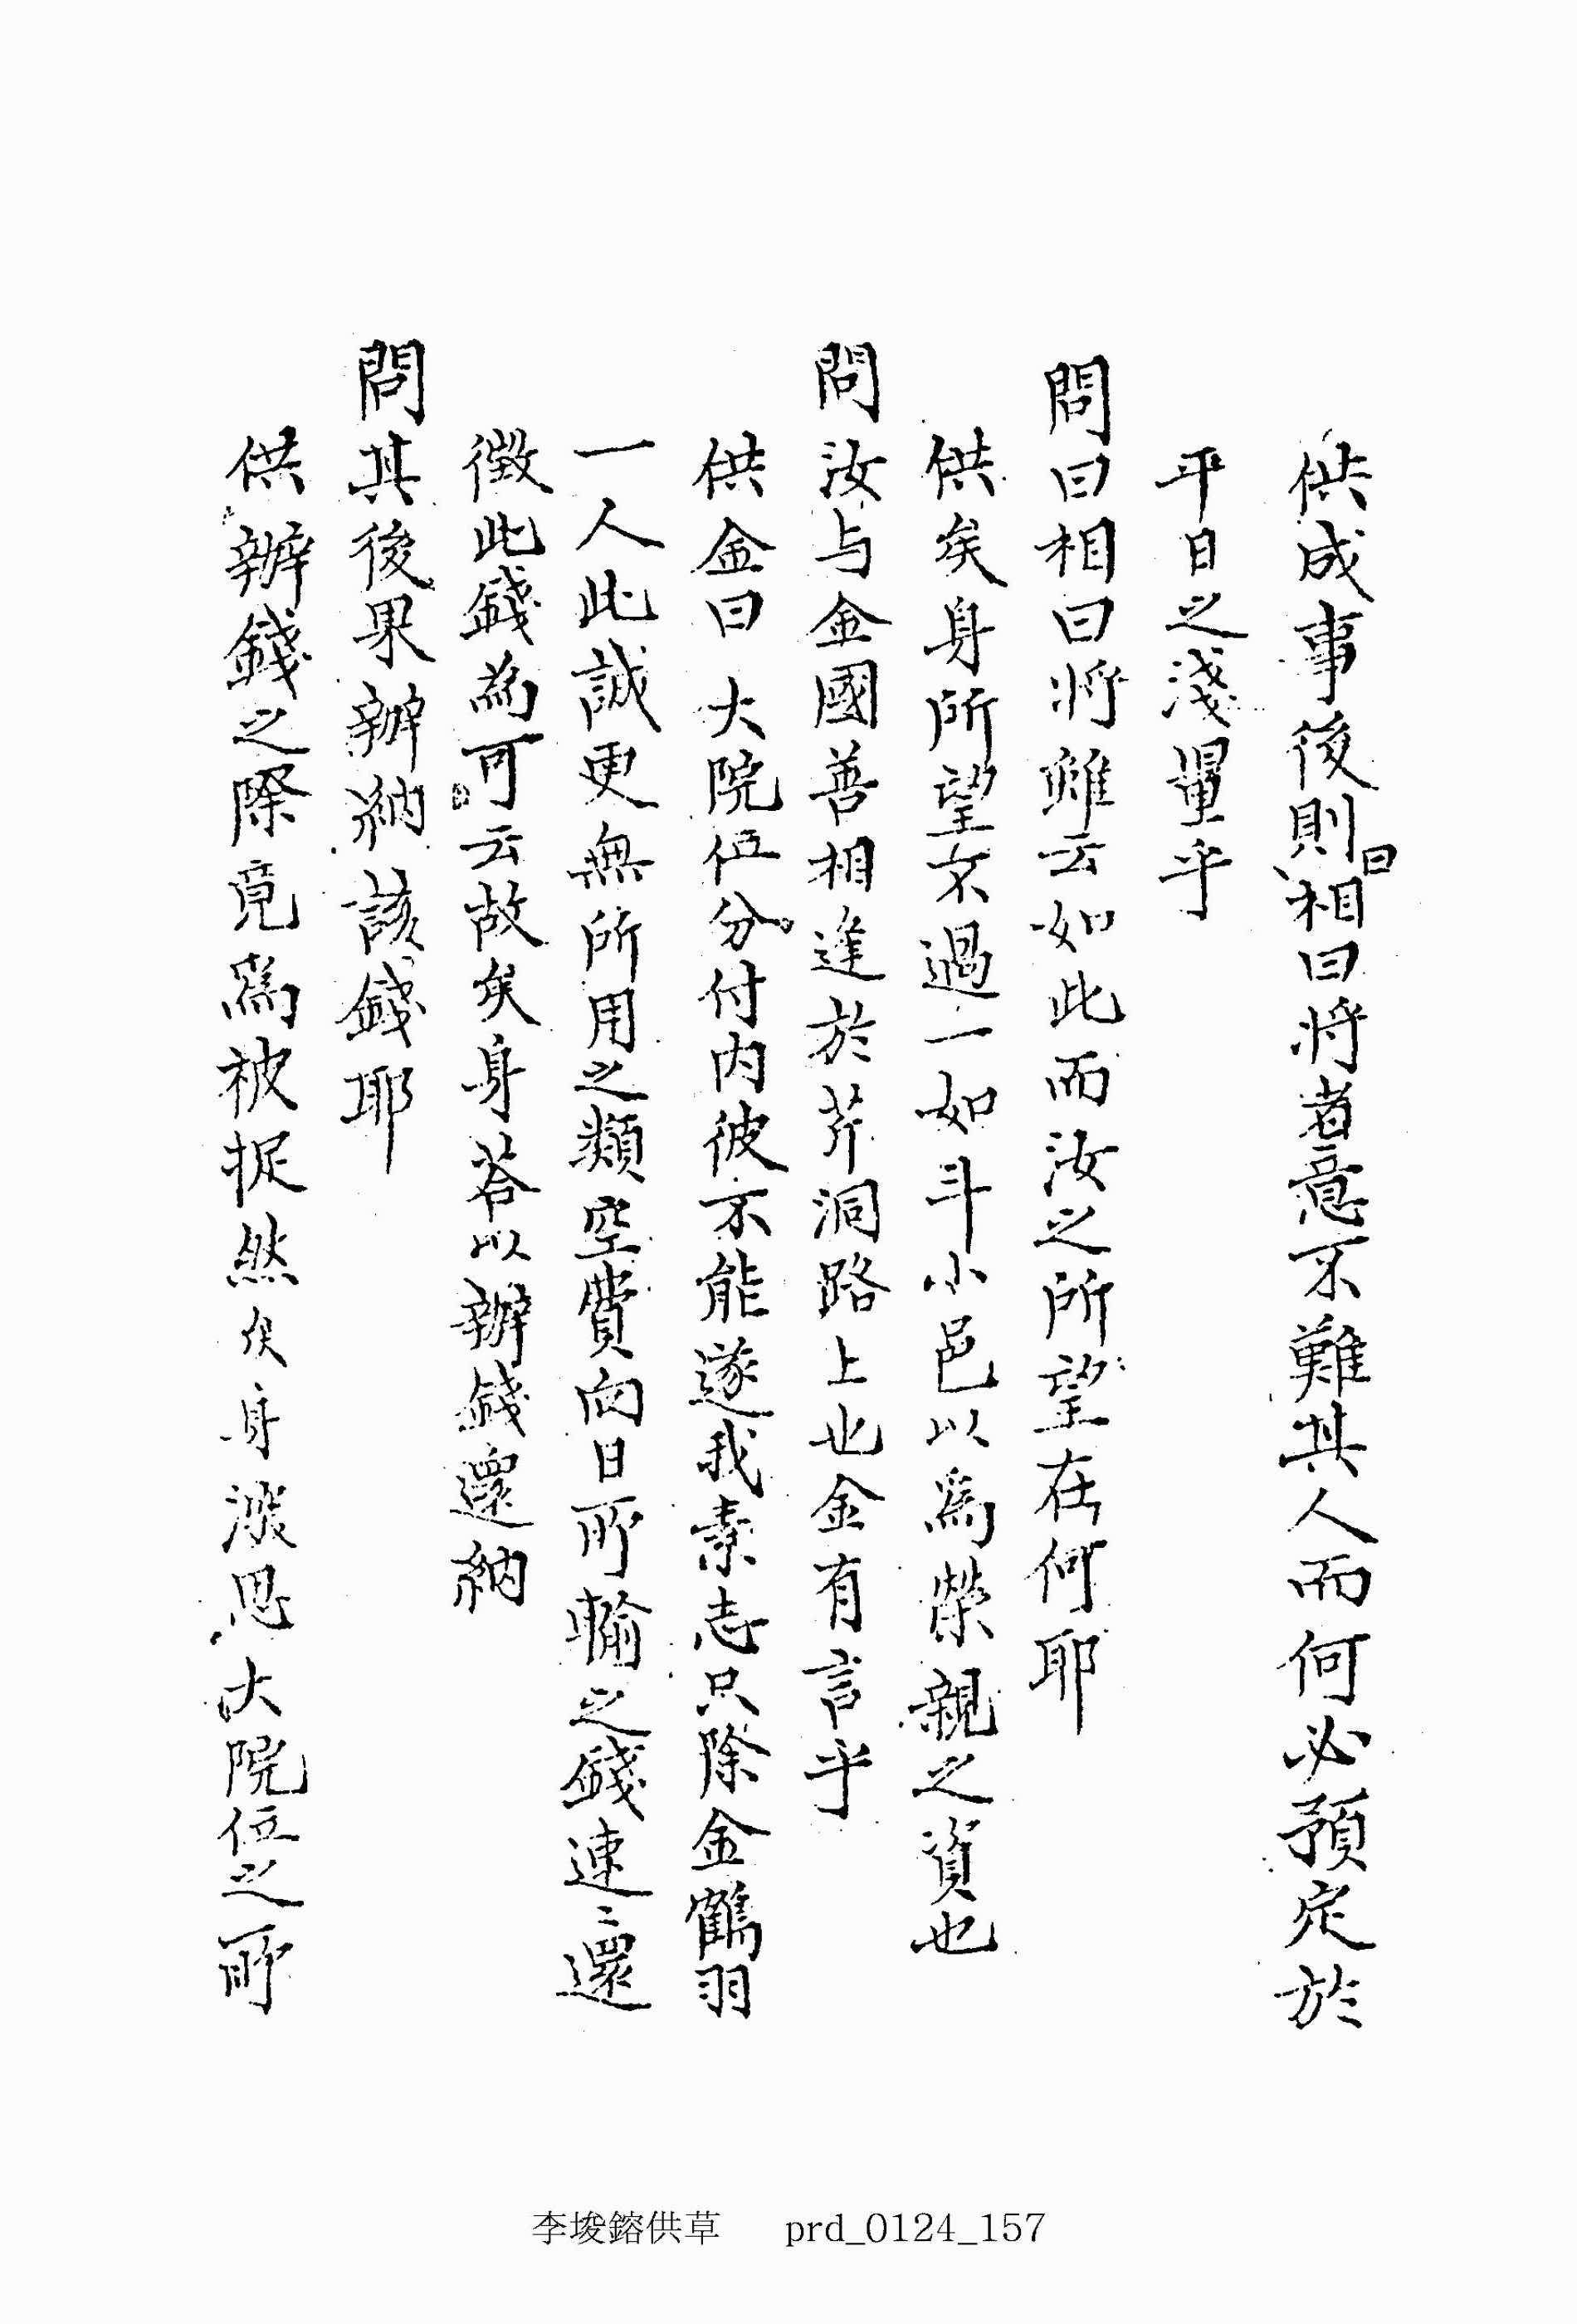 供成事後則曰相曰將者意不難其人而何必預定於
平日之淺量乎
問曰相曰將雖云如此而汝之所望在何耶
供矣身所望不過一如斗小邑以爲榮親之資也
問汝与金國善相逢於芹洞路上也金有言乎
供金曰 大院位分付內彼不能遂我素志只除金鶴羽
一人此誠更無所用之類空費向日所輸之錢速〻還
徵此錢為可云故矣身答以辦錢還納
問其後果辦納該錢耶
供辦錢之際竟爲被捉然矣身深思 大院位之所
李埈鎔供草 prd_0124_157